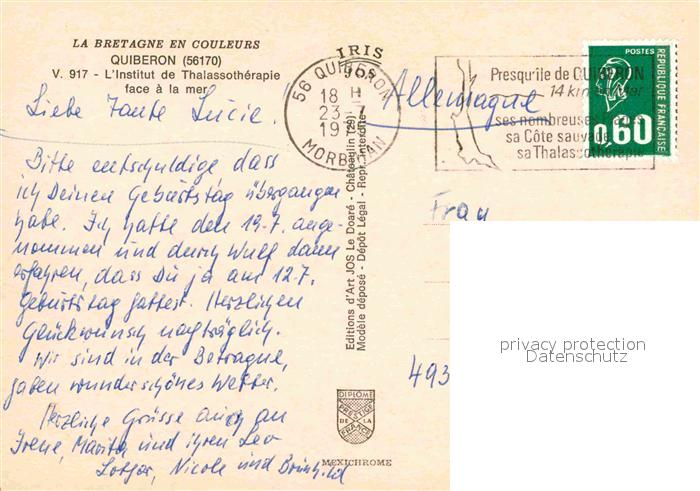 LA BRETAGNE EN COULEURS
QUIBERON (56170)
V. 917 - L'Institut de Thalassothérapie
face à la mer
IRIS
56 QUIBERON
18 H
23 - 7
19
MORBIHAN
Presqu'île de QUIBERON
14 km
ses nombreuses
sa Côte sauvage
sa Thalassothérapie
POSTES
REPUBLIQUE FRANÇAISE
0,60
Allemagne
Liebe Tante Lucie.
Bitte entschuldige dass
ich Deinen Geburtstag übergangen
habe. Ich hatte den 19.7. ange-
nommen und durch Wulf dann
erfahren, dass Du ja am 12.7.
Geburtstag hattest. Herzlichen
Glückwunsch nachträglich.
Wir sind in der Betragne,
haben wunderschönes Wetter.
Herzliche Grüsse auch an
Irene, und ihren Leo
Lothar, Nicole und Brünhild
Editions d'Art JOS Le Doaré - Châteaulin (29)
Modèle déposé - Dépôt Légal - Rep. interdite
Frau
493
DIPLOME
PRESTIGE
DE LA
FRANCE
MEXICHROME
privacy protection
Datenschutz